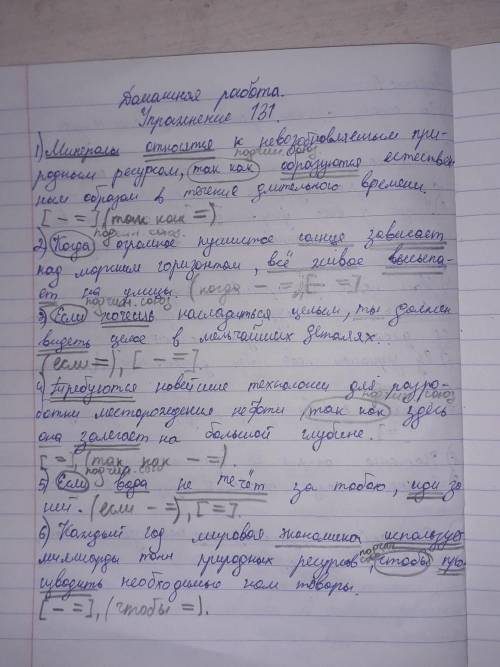 Домашняя работа.
Упражнение 131.
1) Минералы относятся к невозобновляемым при-
подчин. союз
родным ресурсам, так как образуются естествен-
ным образом в течение длительного времени.
[ - = ] (так как =)
подчин. союз.
2) Когда огромное пушистое солнце зависает
над морским горизонтом, всё живое высыпа-
ет на улицы. (когда - = ), [ - = ]
подчин. союз
3) Если хочешь насладиться целым, ты должен
видеть целое в мельчайших деталях.
(если =), [ - = ].
4) Требуются новейшие технологии для разра-
подчин. союз
ботки месторождения нефти, так как здесь
она залегает на большой глубине.
[ = - ], (так как - = ).
подчин. союз
5) Если вода не течёт за тобою, иди за
ней. (если - = ), [ = ].
6) Каждый год мировая экономика использует
подчин.
миллиарды тонн природных ресурсов, чтобы про-
изводить необходимые нам товары.
[ - = ], (чтобы =).